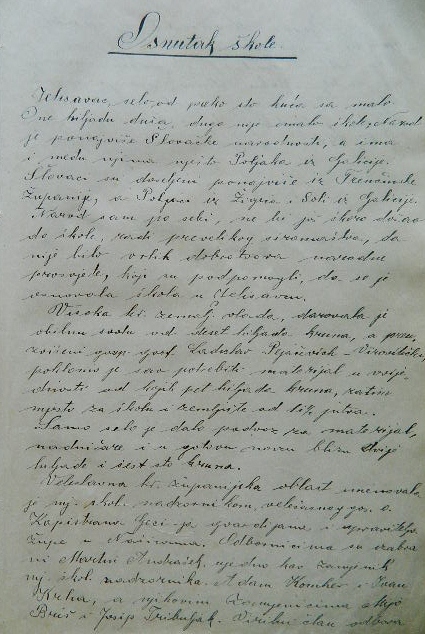 Osnutak škole
Jelisavac, selo, od preko sto kuća sa malo
ne hiljadu dušа, dugo nije imalo škole. Narod
je ponajviše Slovačke narodnosti, a ima
i među njima nješto Poljaka iz Galicije.
Slovaci su doseljeni ponajviše iz Trenčinske
županije, a Poljaci iz i Soli iz Galicije.
Narod sam po sebi, ne bi još skoro došao
do škole, radi prevelikog siromaštva, da
nije bilo vrlih dobrotvora narodne
prosvjete, koji su podpomogli, da se je
osnovala škola u Jelisavcu.
Visoka kr. zemalj. vlada, darovala je
obilnu svotu od deset hiljada kruna, a preuzvišeni
gosp. grof. Ladislav Pejačević Virovitički,
poklonio je sav potrebiti materijal u vrijednosti
od kojih pet hiljada kruna, zatim
mjesto za školu i zemljište od jutra.
Samo selo je dalo podvoz za materijal,
nadničare i u gotovu novcu blizu dvije
hiljade i šest sto kruna.
Veleslavna kr. županijska oblast imenovala
je mj. školi nadzornikom, velečasnog gos. o.
Kapistrana gvardijana i upravitelja
župe u Našicama. Odbornicima su izabrani
Martin Andrašek, ujedno kao zamjenik
mj. škol. nadzornika. Adam i Ivan
a njihovim zamjenicima Mijo
Briš i Josip Tribuljak. Virilni član odbora